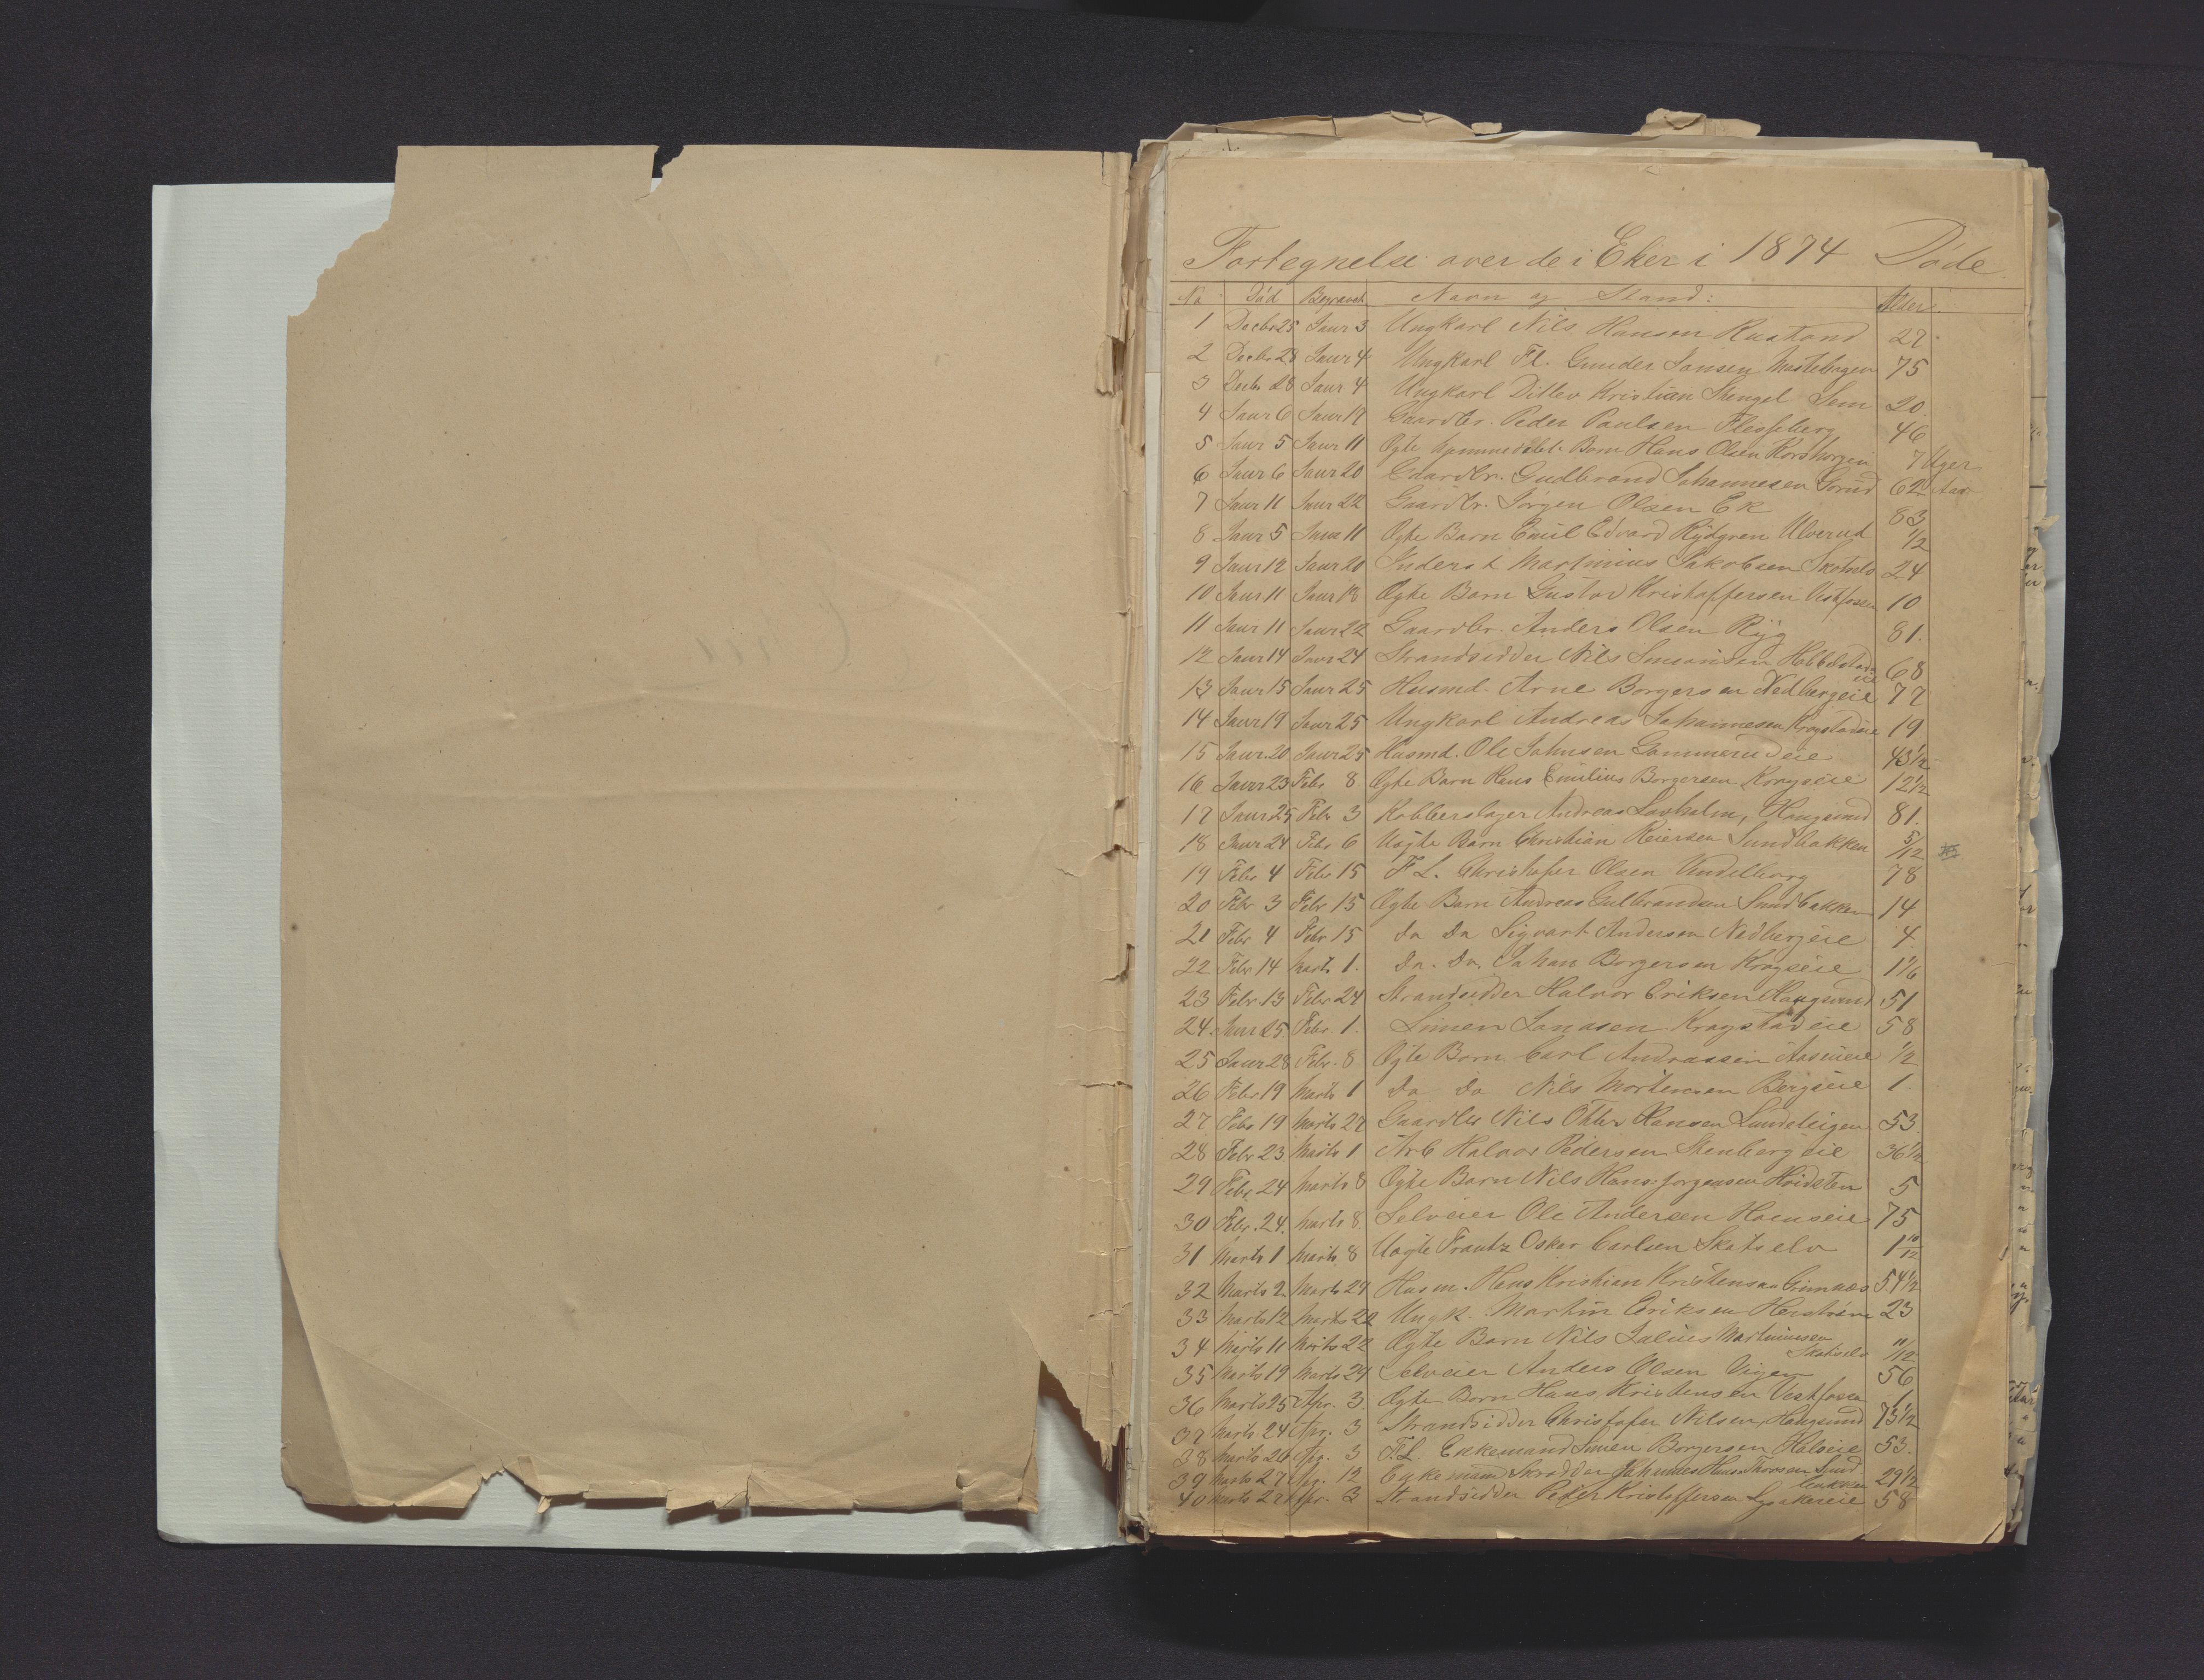 Fortegnelse over de i Eker i 1874 Døde
No Død Begravet Navn og Stand: Alder.
1 Decbr 25 Janr 3 Ungkarl Nils Hansen Rustand 27
2 Decbr 28 Janr 4 Ungkarl Fl. Gunder Jansen 75
3 Decbr 28 Janr 4 Ungkarl Ditlev Kristian Stengel Sem 20
4 Janr 6 Janr 17 Gaardbr. Peder Paulsen Flesseberg 46
5 Janr 5 Janr 11 Ægte Barn Hans Olsen 7 Uger
6 Janr 6 Janr 20 Gaardbr. Gudbrand Johannesen 62 Aar
7 Janr 11 Janr 22 Gaardbr. Jørgen Olsen Ek 83
8 Janr 5 Janr 11 Ægte Barn Emil Edvard Rydgren Ulverud 1/2
9 Janr 12 Janr 20 Inderst Martinius Jakobsen Skotselv 24
10 Janr 11 Janr 18 Ægte Barn Gustav Kristoffersen Vestfossen 10
11 Janr 11 Janr 22 Gaardbr. Anders Olsen Ryg 81.
12 Janr 14 Janr 24 Strandsidder Nils Simonsen Hobbelstad
eie 68
13 Janr 15 Janr 25 Husmd. Arne Borgersen Nedbergeie 77
14 Janr 19 Janr 25 Ungkarl Andreas Johannesen Kragstadeie 19
15 Janr 20 Janr 25 Husmd. Ole Johnsen Gommerudeie 43 1/2
16 Janr 23 Febr 8 Ægte Barn Hans Emilius Borgersen Kragseie 12 1/2
17 Janr 25 Febr 3 Kobberslager Andreas Lavholm, Haugsund 81.
18 Janr 24 Febr 6 Uægte Barn Christian Reiersen Sundbakken 5/12
19 Febr 4 Febr 15 F L. Christofer Olsen 78
20 Febr 3 Febr 15 Ægte Barn Andreas Gulbrandsen Sundbakken 14
21 Febr 4 Febr 15 Do Do Sigvart Andersen Nedbergeie 4
22 Febr 14 Marts 1. Do. Do. Johan Borgersen Kragseie 1 1/6
23 Febr. 13 Febr 24 Strandsidder Halvor Eriksen Haugsund 51
24. Janr 25 Febr. 1. Simen Jonasen Kragstadeie 58
25 Janr 28 Febr. 8 Ægte Barn Carl Andreassen 1/2
26 Febr 19 Marts 1 Do Do Nils Mortensen Bergseie 1.
27 Febr 19 Marts 27 Gaardbr Nils Otter Hansen Lundeteigen 53.
28 Febr 23. Marts 1 Arb Halvor Pedersen Stenbergeie 36 1/2
29 Febr. 24 Marts 8 Ægte Barn Nils Hans Jørgensen Hvidsten 5
30 Febr. 24. Marts 8. Selveier Ole Andersen 75
31 Marts 1 Marts 8 Uægte Frantz Oskar Carlsen Skotselv 1 10/12
32 Marts 2 Marts 24 Husm. Hans Kristian Kristensen 54 1/2
33 Marts 12 Marts 22 Ungk. Martin Eriksen 23
34 Marts 11 Marts 22 Ægte Barn Nils Julius Martiniusen
Skotselv 11/12
35 Marts 19 Marts 24 Selveier Anders Olsen 56
36 Marts 25 Apr. 3. Ægte Barn Hans Kristensen Vestfossen 1
37 Marts 24 Apr. 3 Strandsidder Christofer Nilsen Haugsund 73 1/2
38 Marts 26 Apr. 3 F.L. Enkemand Simen Borgersen 53.
39 Marts 27 Apr. 12 Enkemand Skrædder Johannes Hans Thorsen Sund
bakken 29 1/2
40 Marts 27 Apr. 3 Strandsidder Peder Kristoffersen 58